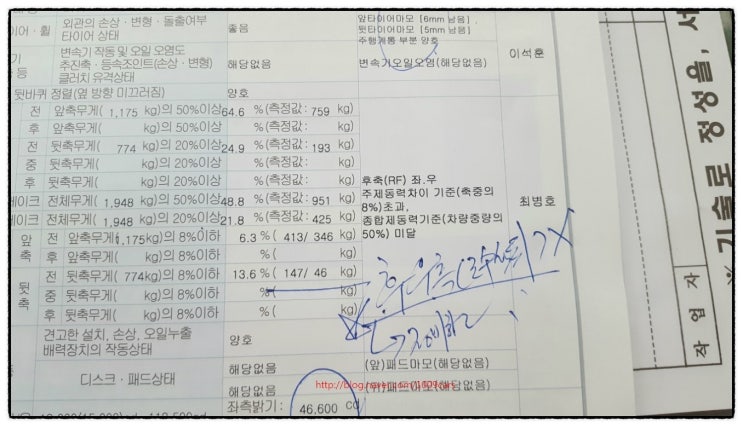 외관의 손상ㆍ변형ㆍ돌출여부
타이어 상태
좋음
앞타이어마모 [6mm 남음]
뒷타이어마모 [5mm 남음]
주행계통 부분 양호
변속기 작동 및 오일 오염도
추진축ㆍ등속조인트(손상ㆍ변형)
클러치 유격상태
해당없음
변속기오일오염(해당없음)
이석훈
뒷바퀴 정렬(옆 방향 미끄러짐) 양호
전 앞축무게( 1,175 kg)의 50%이상 64.6 %(측정값: 759 kg)
후 앞축무게( kg)의 50%이상 %(측정값: kg)
전 뒷축무게( 774 kg)의 20%이상 24.9 %(측정값: 193 kg)
중 뒷축무게( kg)의 20%이상 %(측정값: kg)
후 뒷축무게( kg)의 20%이상 %(측정값: kg)
전체무게( 1,948 kg)의 50%이상 48.8 %(측정값: 951 kg)
전체무게( 1,948 kg)의 20%이상 21.8 %(측정값: 425 kg)
후축(RF) 좌.우
주제동력차이 기준(축중의
8%)초과,
종합제동력기준(차량중량의
50%) 미달
최병호
앞축
전 앞축무게(1,175kg)의 8%이하 6.3 %( 413/ 346 kg)
후 앞축무게( kg)의 8%이하 %( kg)
뒷축
전 뒷축무게( 774kg)의 8%이하 13.6 %( 147/ 46 kg)
중 뒷축무게( kg)의 8%이하 %( kg)
후 뒷축무게( kg)의 8%이하 %( kg)
견고한 설치, 손상, 오일누출
배력장치의 작동상태
양호
디스크ㆍ패드상태
해당없음 (앞)패드마모(해당없음)
해당없음 (뒤)패드마모(해당없음)
좌측밝기: 46,600 cd
작 업 자
※ 기술로 정성을, 서